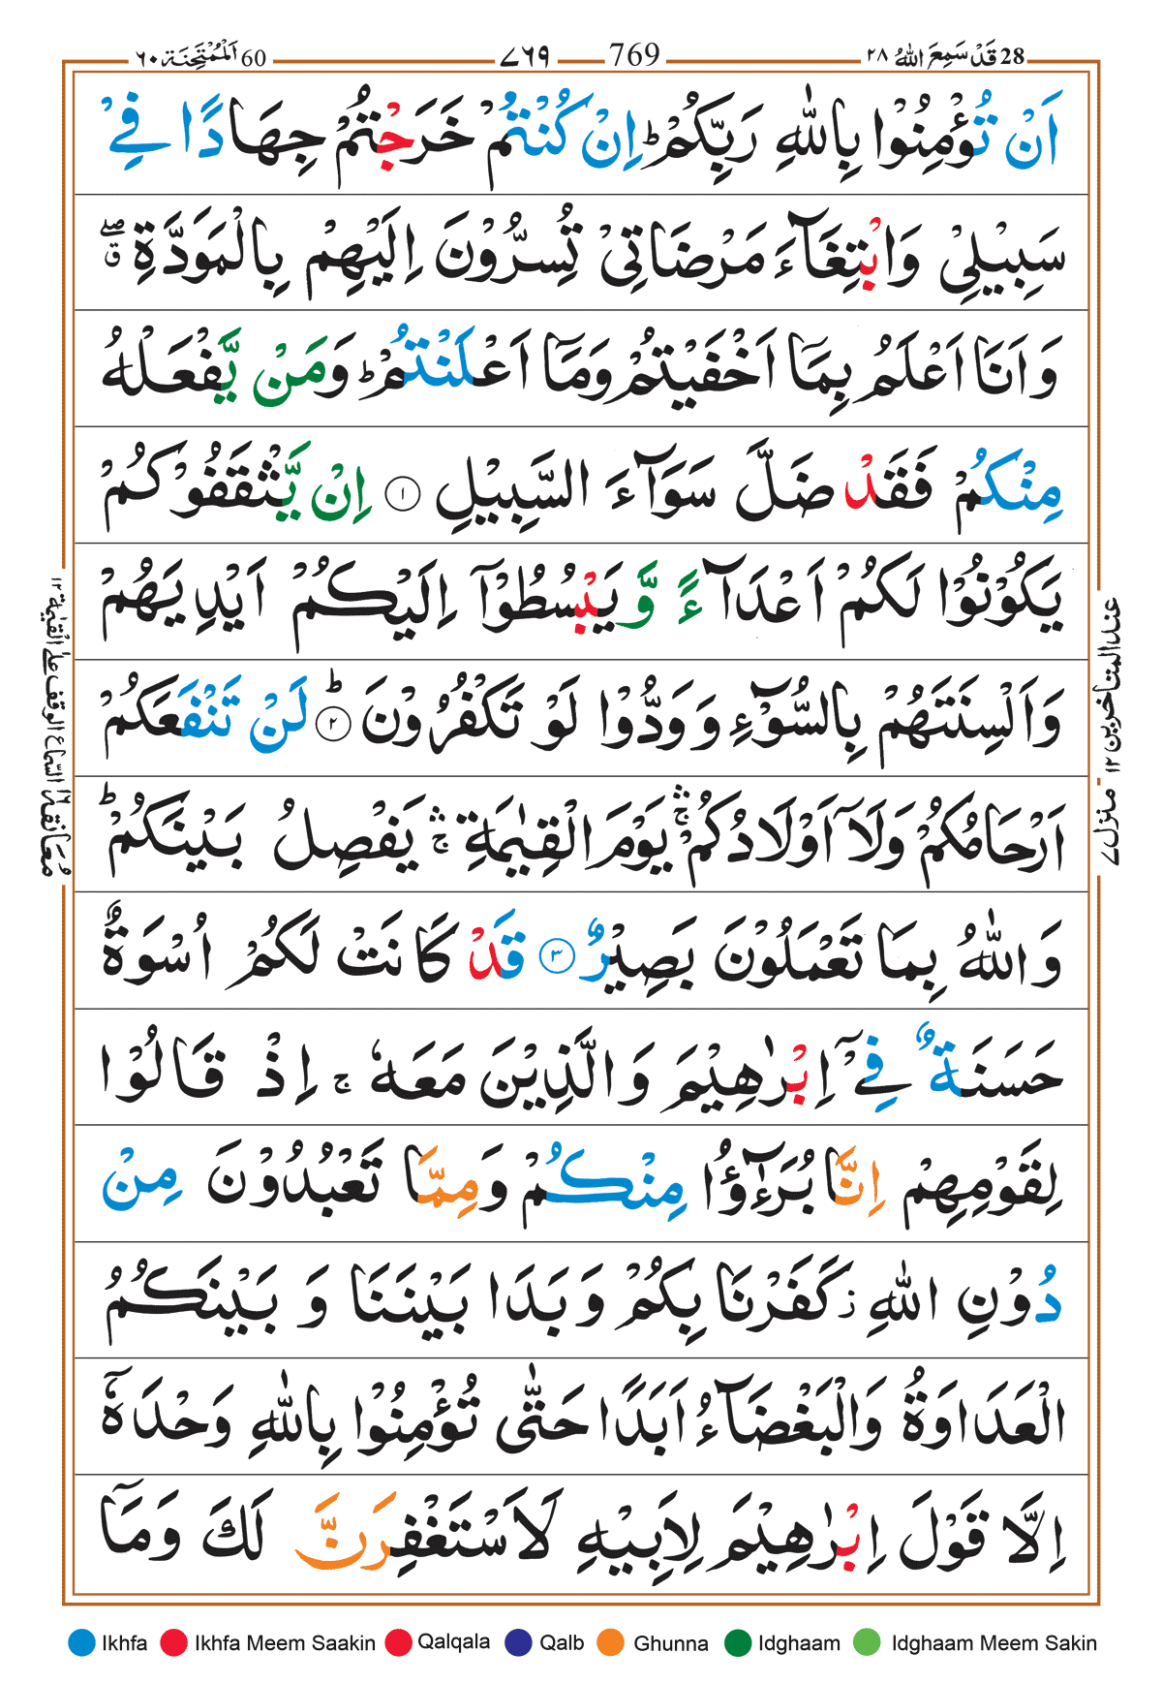 28 قَدْ سَمِعَ اللّٰهُ ٢٨ 769 ٧٦٩ 60 اَلْمُمْتَحِنَة ٦٠
اَنْ تُؤْمِنُوْا بِاللّٰهِ رَبِّكُمْ ؕ اِنْ كُنْتُمْ خَرَجْتُمْ جِهَادًا فِيْ
سَبِيْلِيْ وَابْتِغَآءَ مَرْضَاتِيْ تُسِرُّوْنَ اِلَيْهِمْ بِالْمَوَدَّةِ ۖۗ
وَاَنَا اَعْلَمُ بِمَا اَخْفَيْتُمْ وَمَآ اَعْلَنْتُمْ ؕ وَمَنْ يَّفْعَلْهُ
مِنْكُمْ فَقَدْ ضَلَّ سَوَآءَ السَّبِيْلِ ١ اِنْ يَّثْقَفُوْكُمْ
يَكُوْنُوْا لَكُمْ اَعْدَآءً وَّيَبْسُطُوْٓا اِلَيْكُمْ اَيْدِيَهُمْ
وَاَلْسِنَتَهُمْ بِالسُّوْٓءِ وَوَدُّوْا لَوْ تَكْفُرُوْنَ ؕ ٢ لَنْ تَنْفَعَكُمْ
اَرْحَامُكُمْ وَلَآ اَوْلَادُكُمْ ۛۚ يَوْمَ الْقِيٰمَةِ ۛۚ يَفْصِلُ بَيْنَكُمْ ؕ
وَاللّٰهُ بِمَا تَعْمَلُوْنَ بَصِيْرٌ ٣ قَدْ كَانَتْ لَكُمْ اُسْوَةٌ
حَسَنَةٌ فِيْٓ اِبْرٰهِيْمَ وَالَّذِيْنَ مَعَهٗ ۚ اِذْ قَالُوْا
لِقَوْمِهِمْ اِنَّا بُرَءٰٓؤُا مِنْكُمْ وَمِمَّا تَعْبُدُوْنَ مِنْ
دُوْنِ اللّٰهِ ز كَفَرْنَا بِكُمْ وَبَدَا بَيْنَنَا وَ بَيْنَكُمُ
الْعَدَاوَةُ وَالْبَغْضَآءُ اَبَدًا حَتّٰى تُؤْمِنُوْا بِاللّٰهِ وَحْدَهٗٓ
اِلَّا قَوْلَ اِبْرٰهِيْمَ لِاَبِيْهِ لَاَسْتَغْفِرَنَّ لَكَ وَمَآ
عند المتاخرين ١٢
منزل ٧
مُعَانقة ١٦ السّماع الوقف على القيمة ١٢
Ikhfa Ikhfa Meem Saakin Qalqala Qalb Ghunna Idghaam Idghaam Meem Sakin